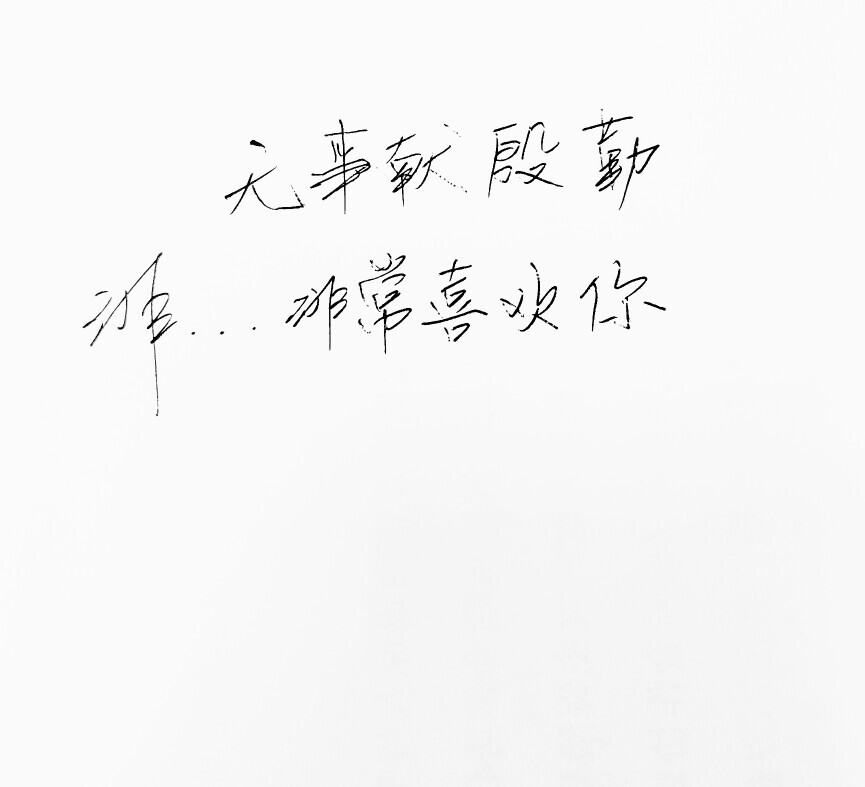 无事献殷勤
非...非常喜欢你